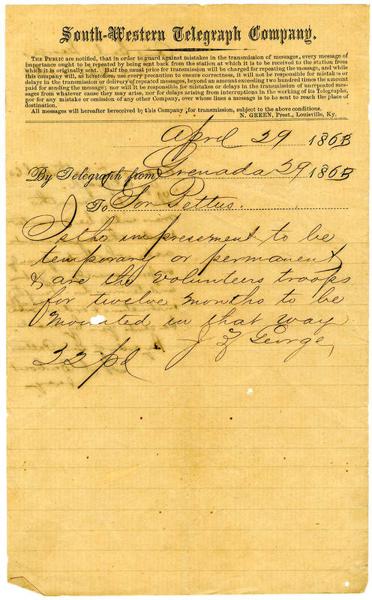 South-Western Telegraph Company.
THE PUBLIC are notified, that in order to guard against mistakes in the transmission of messages, every message of
importance ought to be repeated by being sent back from the station at which it is to be received to the station from
which it is originally sent. Half the usual price for transmission will be charged for repeating the message, and while
this company will, as heretofore, use every precaution to ensure correctness, it will not be responsible for mistakes or
delays in the transmission or delivery of repeated messages, beyond an amount exceeding two hundred times the amount
paid for sending the message; nor will it be responsible for mistakes or delays in the transmission of unrepeated messa-
ges from whatever cause they may arise, nor for delays arising from interruptions in the working of its Telegraphs,
nor for any mistake or omission of any other Company, over whose lines a message is to be sent to reach the place of
destination.
All messages will hereafter be received by this Company for transmission, subject to the above conditions.
N. GREEN, Prest., Louisville, Ky.
April 29 1863
By Telegraph from Grenada 29 1863
To Gov Pettus.
Is the impressment to be
temporary or permanent
& are the volunteers troops
for twelve months to be
mounted in that way
22 pd J Z George